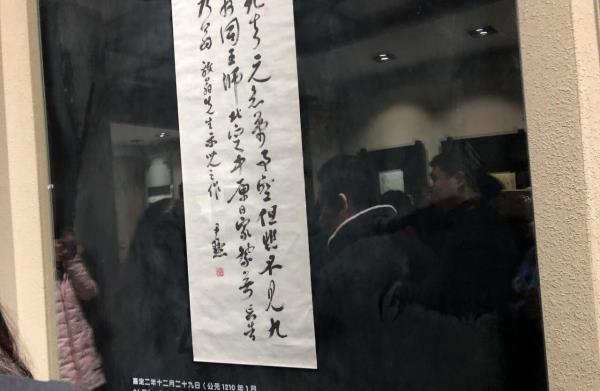 死去元知萬事空但悲不見九
州同王師北定中原日家祭無忘告
乃翁 放翁先生示兒之作
尹默
嘉定二年十二月二十九日（公元 1210 年 1 月